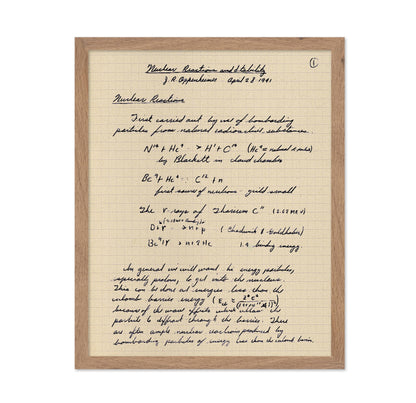 ①
Nuclear Reactions and Stability
J. R. Oppenheimer April 23 1941
Nuclear Reactions
First carried out by use of bombarding
particles from natural radioactive substances.
N¹⁴ + He⁴ → H¹ + C¹² (He⁴
by Blackett in cloud chamber
Be⁹ + He⁴ C¹² + n
first source of neutrons - yield small
The γ rays of Thorium C" (2.62 MeV)
D + γ → n + p (Chadwick & Goldhaber)
Be⁹ / γ → n + 2 He 1.9 binding energy
In general we will want the energy particles,
especially protons, to get into the nucleus.
This can be done at energies less than the
coulomb barrier energy (E
because of the wave effects which allow the
particle to diffract through the barrier. There
are often ample nuclear reactions produced by
bombarding particles of energy less than the coulomb barrier.